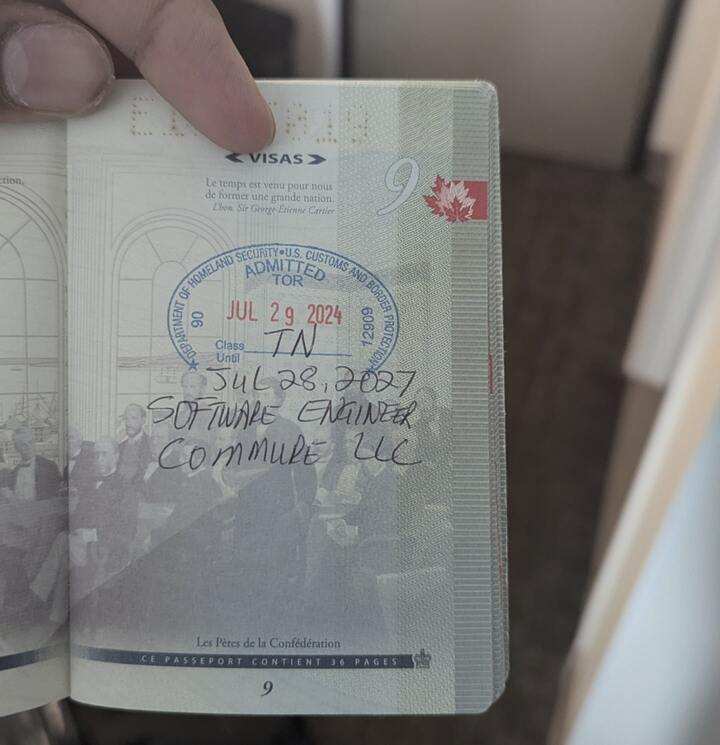 VISAS
9
Le temps est venu pour nous
de former une grande nation.
L'hon. Sir George Étienne Cartier
ction.
★DEPARTMENT OF HOMELAND SECURITY•U.S. CUSTOMS AND BORDER PROTECTION★
ADMITTED
TOR
JUL 29 2024
12909
Class TN
Until
JUL 28, 2027
SOFTWARE ENGINEER
COMMURE LLC
Les Pères de la Confédération
CE PASSEPORT CONTIENT 36 PAGES
9